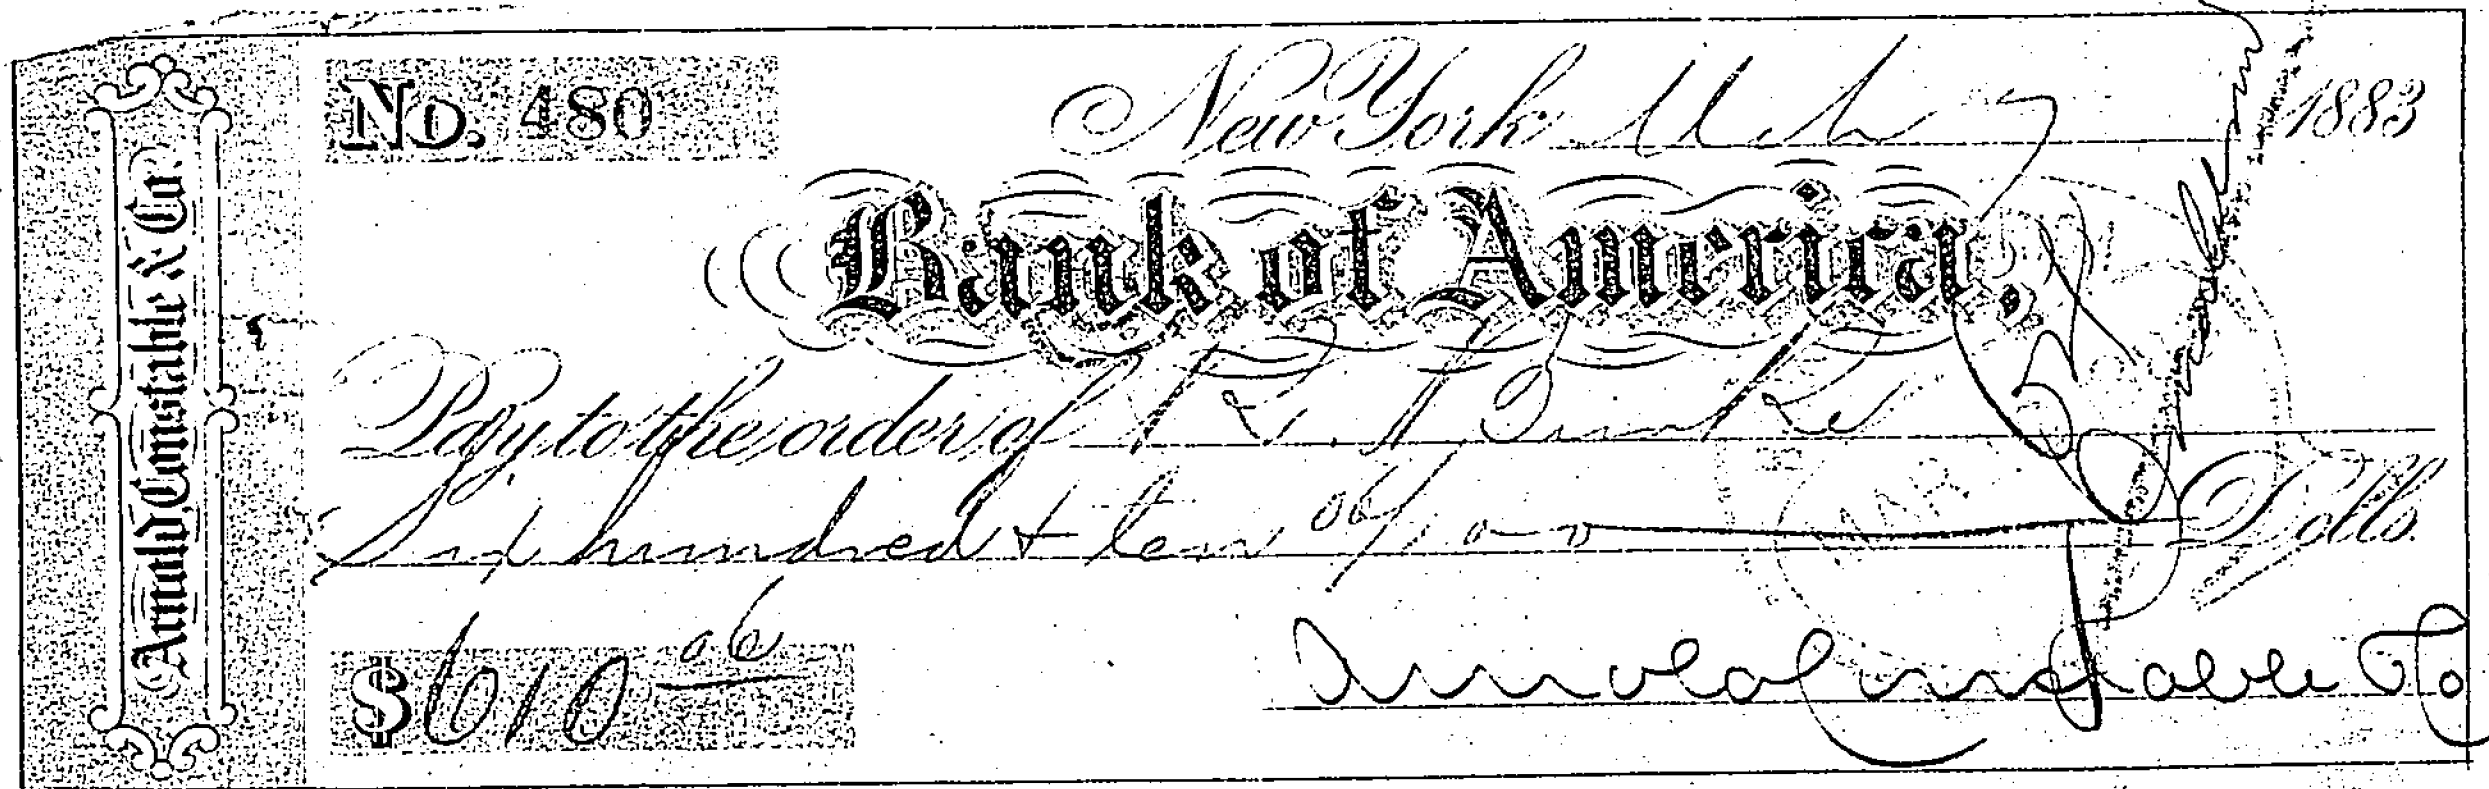 Arnold, Constable & Co.
No. 480
New York Mch 7 1883
Bank of America,
Pay to the order of
Six hundred & ten 06/100 Dolls.
$610 06
Arnold Constable Co